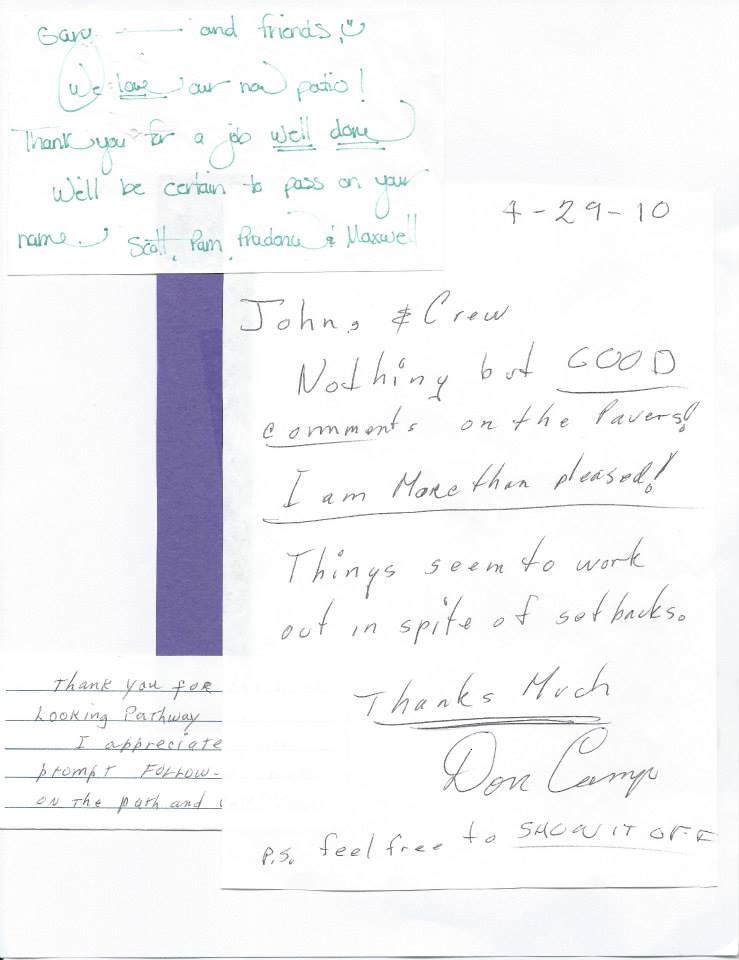 Gary —— and friends,
We love our new patio!
Thank you for a job well done
We'll be certain to pass on your
name. Scott, Pam, & Maxwell
4-29-10
John, & Crew
Nothing but GOOD
comments on the Pavers!
I am More than pleased!
Things seem to work
out in spite of setbacks.
Thanks Much
Don Camp
P.S. feel free to SHOW IT OFF
Thank you for
Looking Pathway
I appreciate
prompt Follow-
on the path and